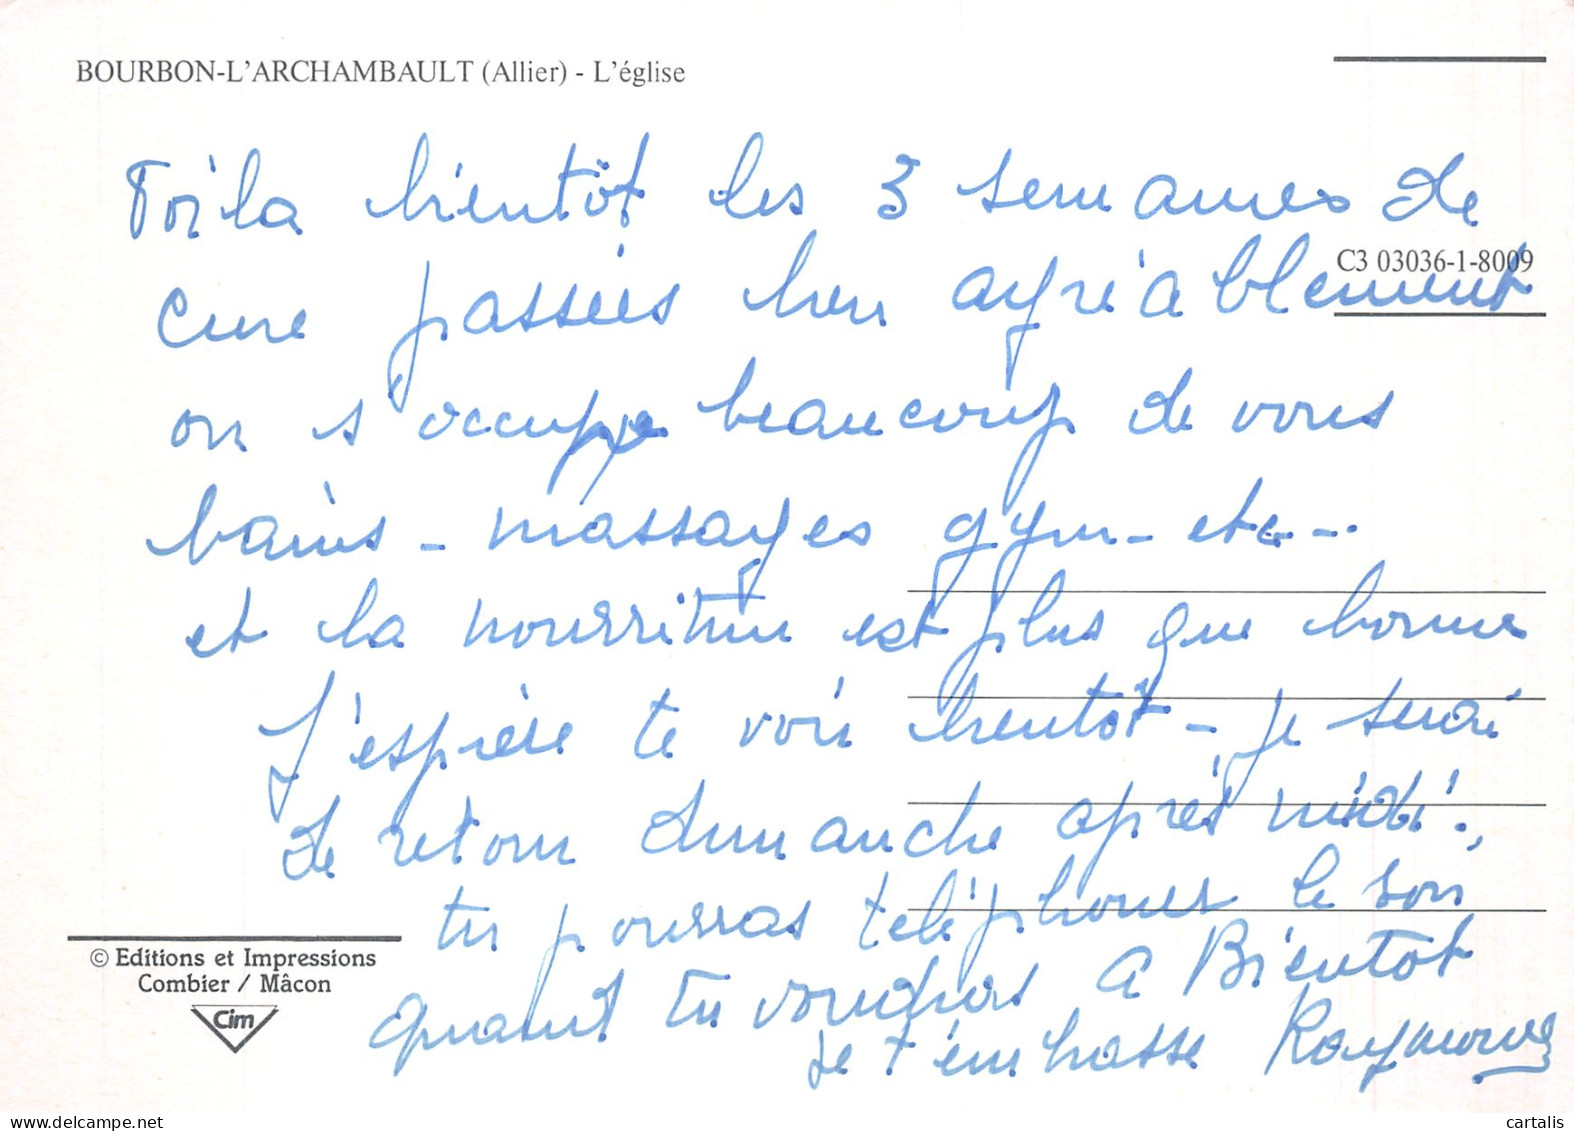 BOURBON-L'ARCHAMBAULT (Allier) - L'église
Voila bientôt les 3 semaines de
C3 03036-1-8009
cure passées bien agréablement
on s'occupe beaucoup de vous
bains - massages gym - etc - ..
et la nourriture est plus que bonne
J'espère te voir bientôt - je serai
de retour dimanche après midi.
tu pourras téléphoner le soir
© Editions et Impressions
Combier / Mâcon
Cim
quant tu voudras A Bientot
je t'embrasse Raymonde
www.delcampe.net
cartalis